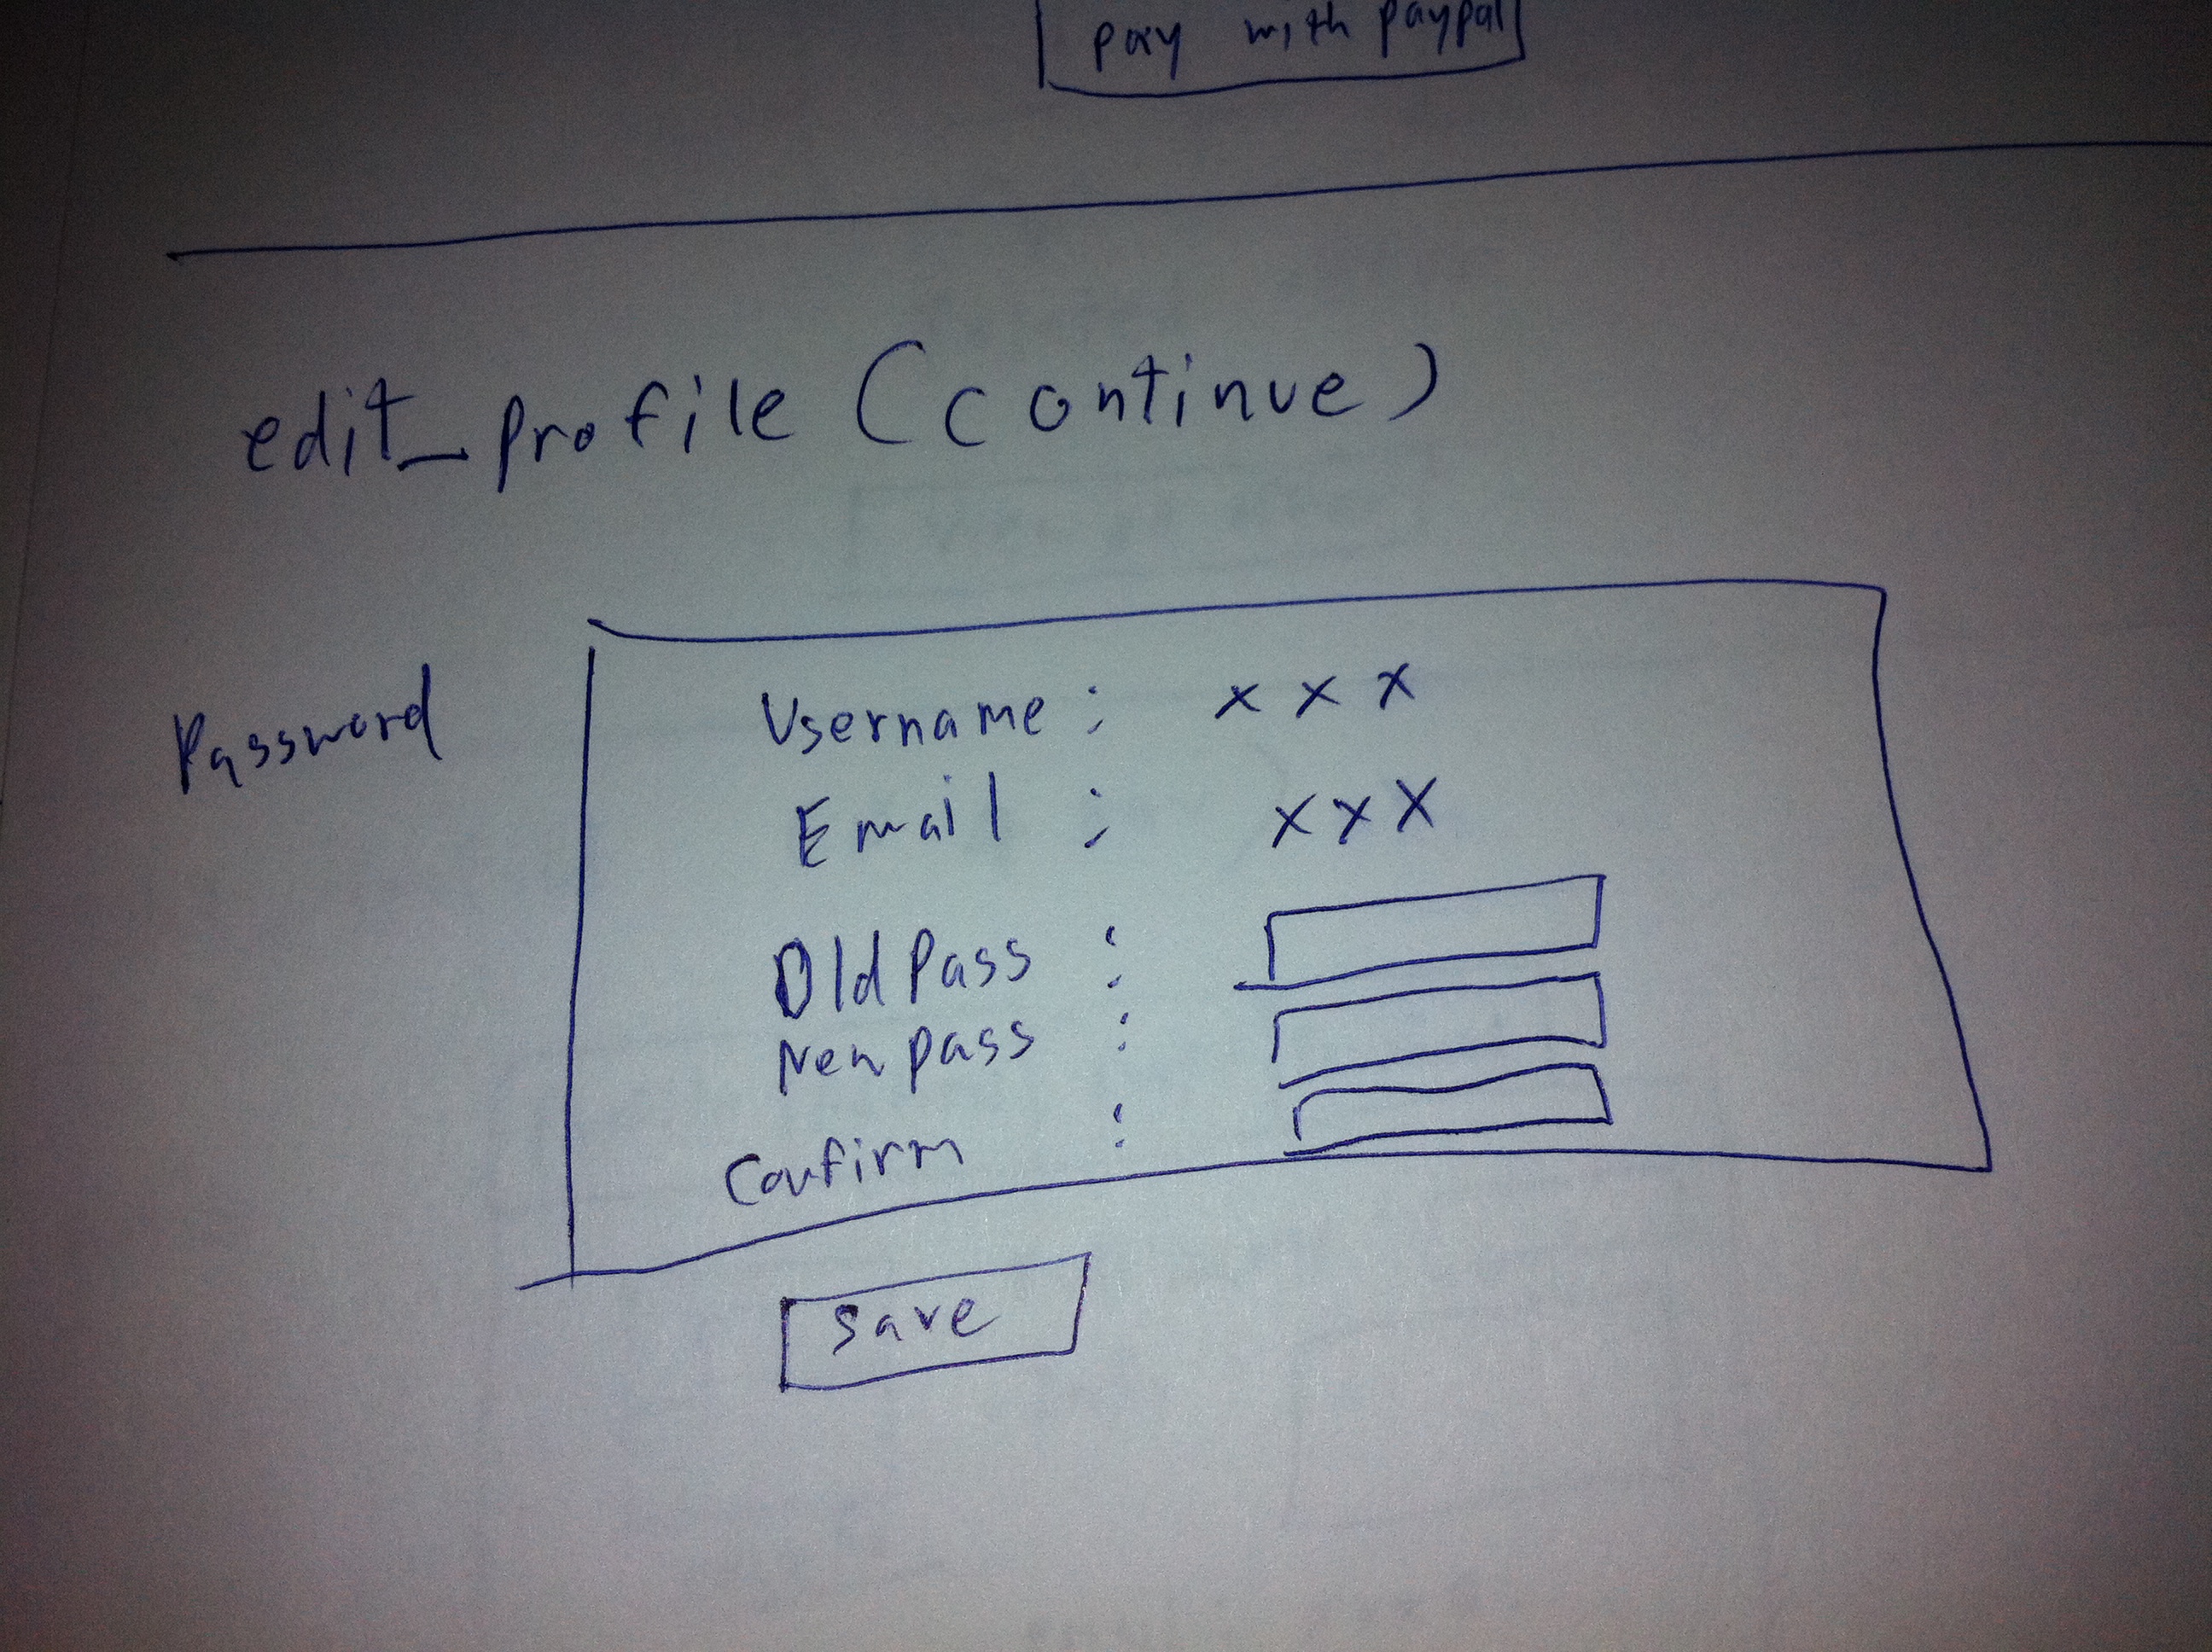 pay with paypal
edit_profile (continue)
Password
Username : x x x
Email : x x x
Old pass :
New pass :
Confirm :
Save